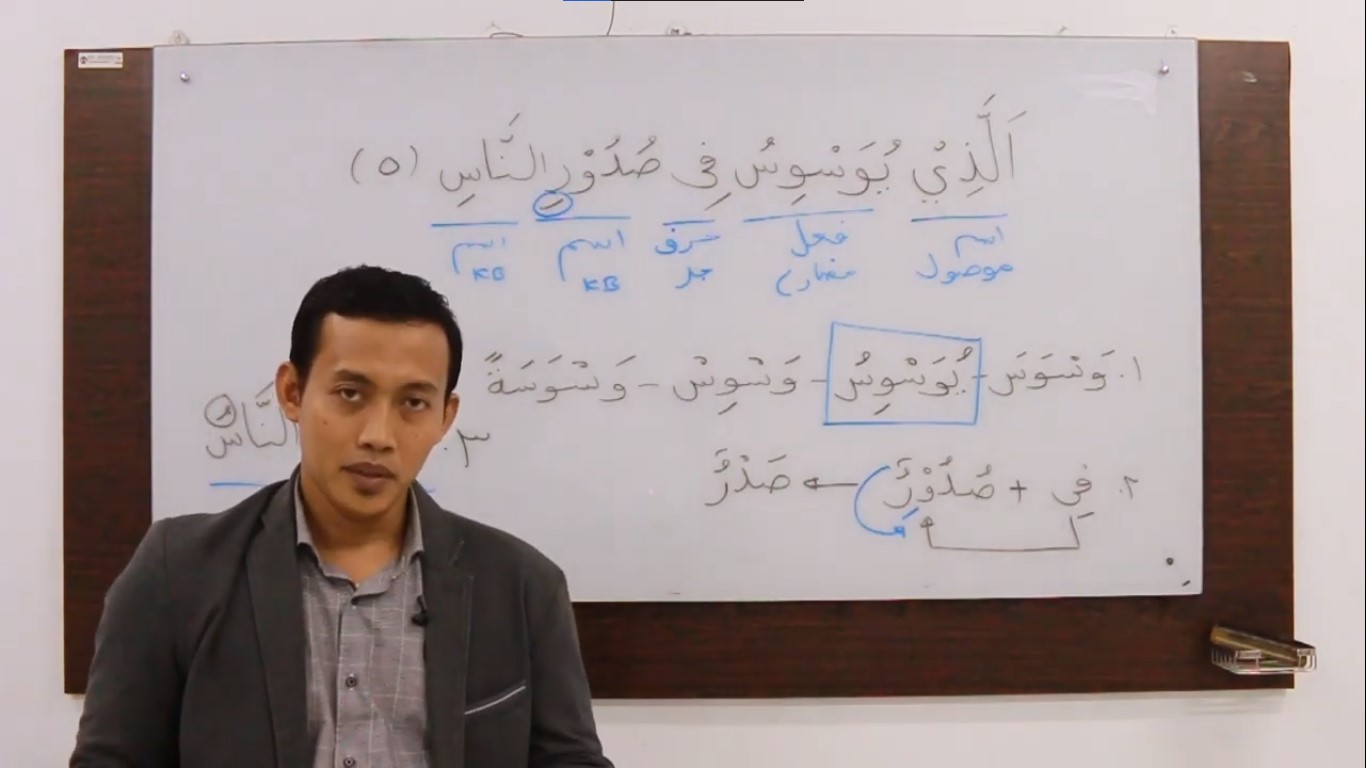 اَلَّذِيْ يُوَسْوِسُ فِى صُدُوْرِ النَّاسِ (٥)
اسم موصول
فعل مضارع
حرف جر
اسم KB
اسم KB
١. وَسْوَسَ - يُوَسْوِسُ - وَسْوِسْ - وَسْوَسَةً
٢. فِي + صُدُوْرٌِ ← صَدْرٌ
٣. النَّاس